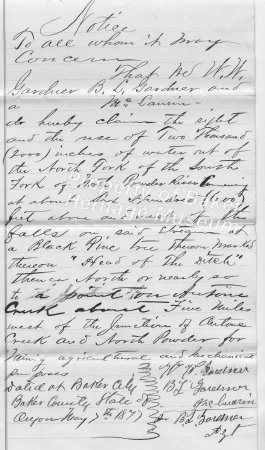 Notice
To all whom it may
Concern
That We W. W.
Gardner B. L. Gardner and
a Mc Laurin
do hereby claim the right
and the use of Two Thousand
(2000) inches of water out of
the North Fork of the South
Fork of Powder River
at about
feet above an the
falls on said at
a Black Pine tree thereon Marked
thereon "Head of the Ditch"
thence North or nearly so
to a point on Antone
Creek about Five Miles
west of the Junction of Antone
Creek and North Powder for
Mining agricultural and mechanical
purposes
W W Gardner
Dated at Baker City
B L Gardner
Baker County State of
Oregon May 7th 187
pr B L Gardner
Agt